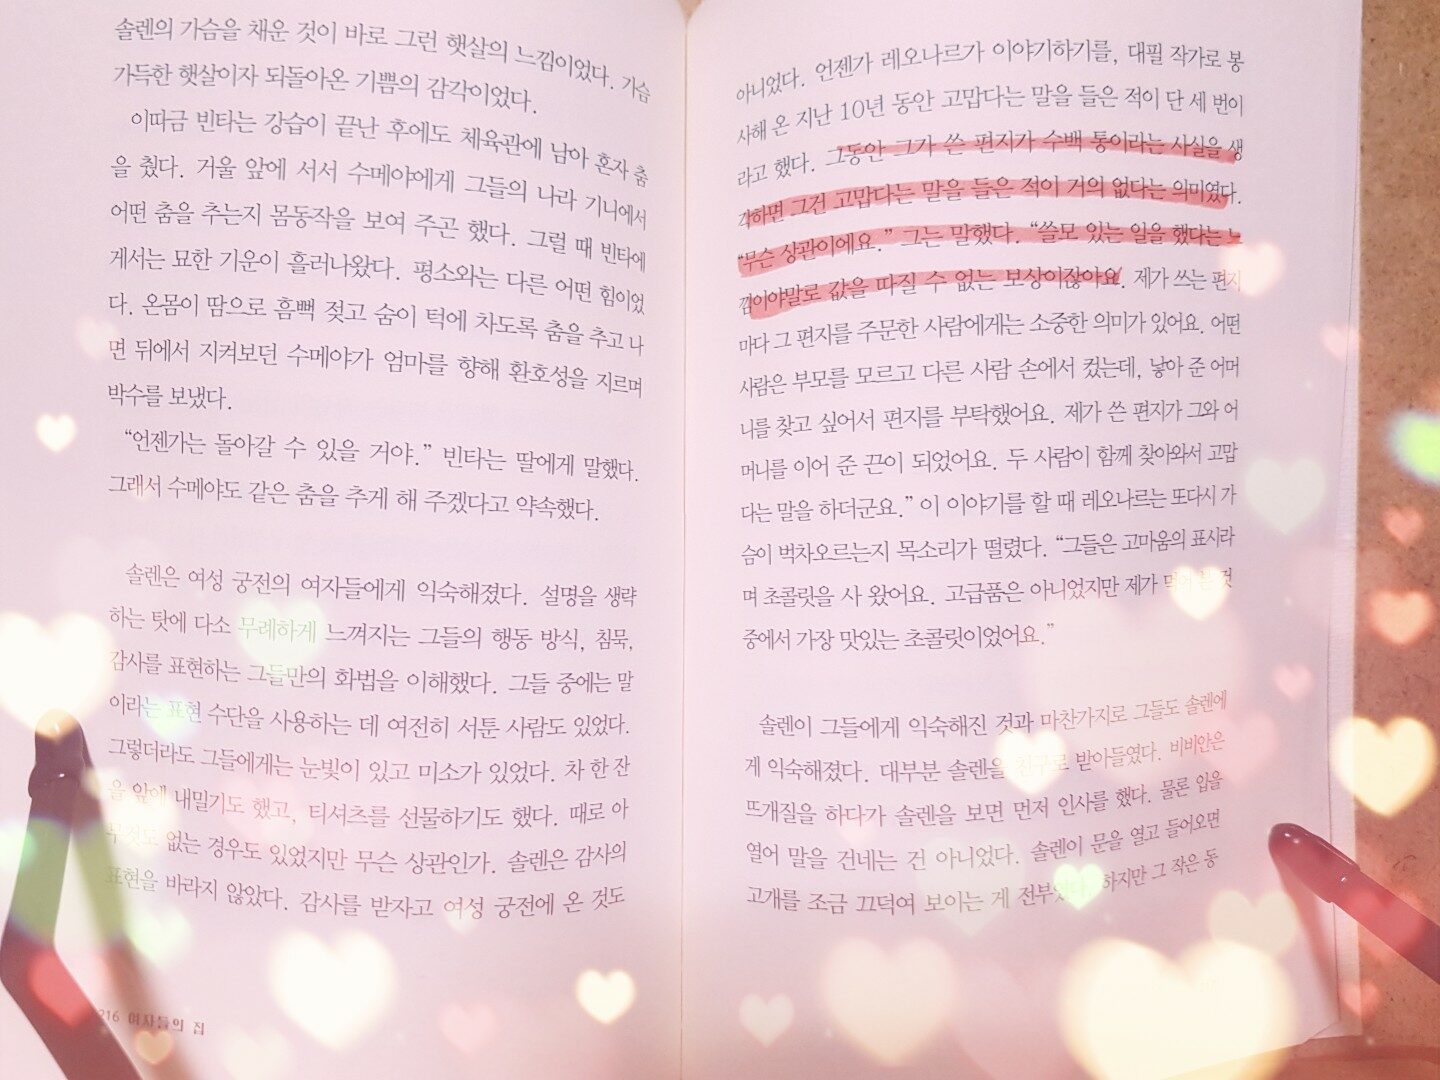 솔렌의 가슴을 채운 것이 바로 그런 햇살의 느낌이었다. 가슴
가득한 햇살이자 되돌아온 기쁨의 감각이었다.
이따금 빈타는 강습이 끝난 후에도 체육관에 남아 혼자 춤
을 췄다. 거울 앞에 서서 수메야에게 그들의 나라 기니에서
어떤 춤을 추는지 몸동작을 보여 주곤 했다. 그럴 때 빈타에
게서는 묘한 기운이 흘러나왔다. 평소와는 다른 어떤 힘이었
다. 온몸이 땀으로 흠뻑 젖고 숨이 턱에 차도록 춤을 추고 나
면 뒤에서 지켜보던 수메야가 엄마를 향해 환호성을 지르며
박수를 보냈다.
“언젠가는 돌아갈 수 있을 거야.” 빈타는 딸에게 말했다.
그래서 수메야도 같은 춤을 추게 해 주겠다고 약속했다.
솔렌은 여성 궁전의 여자들에게 익숙해졌다. 설명을 생략
하는 탓에 다소 무례하게 느껴지는 그들의 행동 방식, 침묵,
감사를 표현하는 그들만의 화법을 이해했다. 그들 중에는 말
이라는 표현 수단을 사용하는 데 여전히 서툰 사람도 있었다.
그렇더라도 그들에게는 눈빛이 있고 미소가 있었다. 차 한 잔
을 앞에 내밀기도 했고, 티셔츠를 선물하기도 했다. 때로 아
무것도 없는 경우도 있었지만 무슨 상관인가. 솔렌은 감사의
표현을 바라지 않았다. 감사를 받자고 여성 궁전에 온 것도
216 여자들의 집
아니었다. 언젠가 레오나르가 이야기하기를, 대필 작가로 봉
사해 온 지난 10년 동안 고맙다는 말을 들은 적이 단 세 번이
라고 했다. 그동안 그가 쓴 편지가 수백 통이라는 사실을 생
각하면 그건 고맙다는 말을 들은 적이 거의 없다는 의미였다.
“무슨 상관이에요.” 그는 말했다. “쓸모 있는 일을 했다는 느
낌이야말로 값을 따질 수 없는 보상이잖아요. 제가 쓰는 편지
마다 그 편지를 주문한 사람에게는 소중한 의미가 있어요. 어떤
사람은 부모를 모르고 다른 사람 손에서 컸는데, 낳아 준 어머
니를 찾고 싶어서 편지를 부탁했어요. 제가 쓴 편지가 그와 어
머니를 이어 준 끈이 되었어요. 두 사람이 함께 찾아와서 고맙
다는 말을 하더군요.” 이 이야기를 할 때 레오나르는 또다시 가
슴이 벅차오르는지 목소리가 떨렸다. “그들은 고마움의 표시라
며 초콜릿을 사 왔어요. 고급품은 아니었지만 제가 먹어 본 것
중에서 가장 맛있는 초콜릿이었어요.”
솔렌이 그들에게 익숙해진 것과 마찬가지로 그들도 솔렌에
게 익숙해졌다. 대부분 솔렌을 친구로 받아들였다. 비비안은
뜨개질을 하다가 솔렌을 보면 먼저 인사를 했다. 물론 입을
열어 말을 건네는 건 아니었다. 솔렌이 문을 열고 들어오면
고개를 조금 끄덕여 보이는 게 전부였다. 하지만 그 작은 동